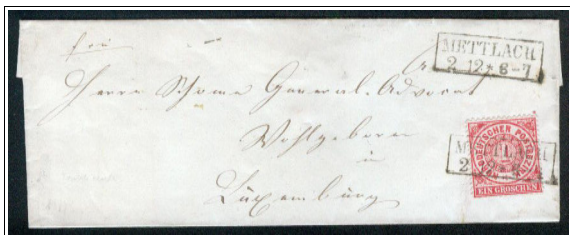 frei
METTLACH
2 12 * 6-7
Herrn Schome General-Advocat
Wohlgeboren
in
Luxemburg
NORDDEUTSCHER POSTBEZIRK
1
EIN GROSCHEN
METTLACH
2